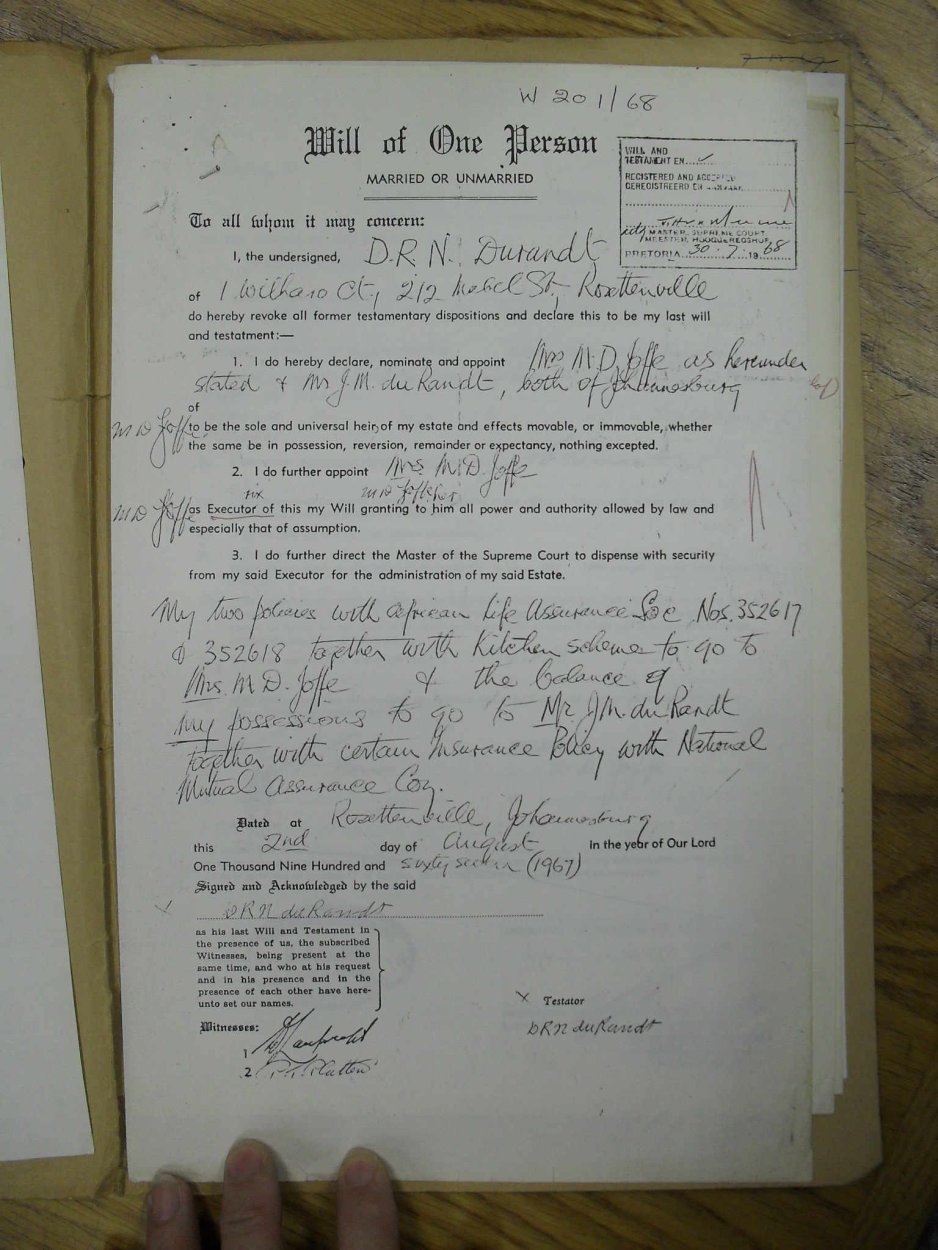 W 201/68
Will of One Person
MARRIED OR UNMARRIED
WILL AND
TESTAMENT EN
REGISTERED AND ACCEPTED
GEREGISTREERD EN
MASTER, SUPREME COURT
MEESTER, HOOGGEREGSHOF
PRETORIA 30.7.1968
To all whom it may concern:
I, the undersigned, D.R.N. Durandt
of 1 Withano Ct, 212 Mabel St, Rosettenville
do hereby revoke all former testamentary dispositions and declare this to be my last will
and testatment:—
1. I do hereby declare, nominate and appoint Mrs M.D. Joffe as hereunder
stated & Mr J.M. du Randt, both of Johannesburg
of
M D Joffe to be the sole and universal heir, of my estate and effects movable, or immovable, whether
the same be in possession, reversion, remainder or expectancy, nothing excepted.
2. I do further appoint Mrs. M.D. Joffe
rix M D Joffe her
M D Joffe as Executor of this my Will granting to him all power and authority allowed by law and
especially that of assumption.
3. I do further direct the Master of the Supreme Court to dispense with security
from my said Executor for the administration of my said Estate.
My two policies with African Life Assurance Soc Nos. 352617
& 352618 together with Kitchen scheme to go to
Mrs. M D. Joffe & the balance of
my possessions to go to Mr J.M. du Randt
together with certain Insurance Policy with National
Mutual Assurance Coy.
Dated at Rosettenville, Johannesburg
this 2nd day of August in the year of Our Lord
One Thousand Nine Hundred and sixty seven (1967)
Signed and Acknowledged by the said
x D R N du Randt
as his last Will and Testament in
the presence of us, the subscribed
Witnesses, being present at the
same time, and who at his request
and in his presence and in the
presence of each other have here-
unto set our names.
x Testator
D R N du Randt
Witnesses:
1
2